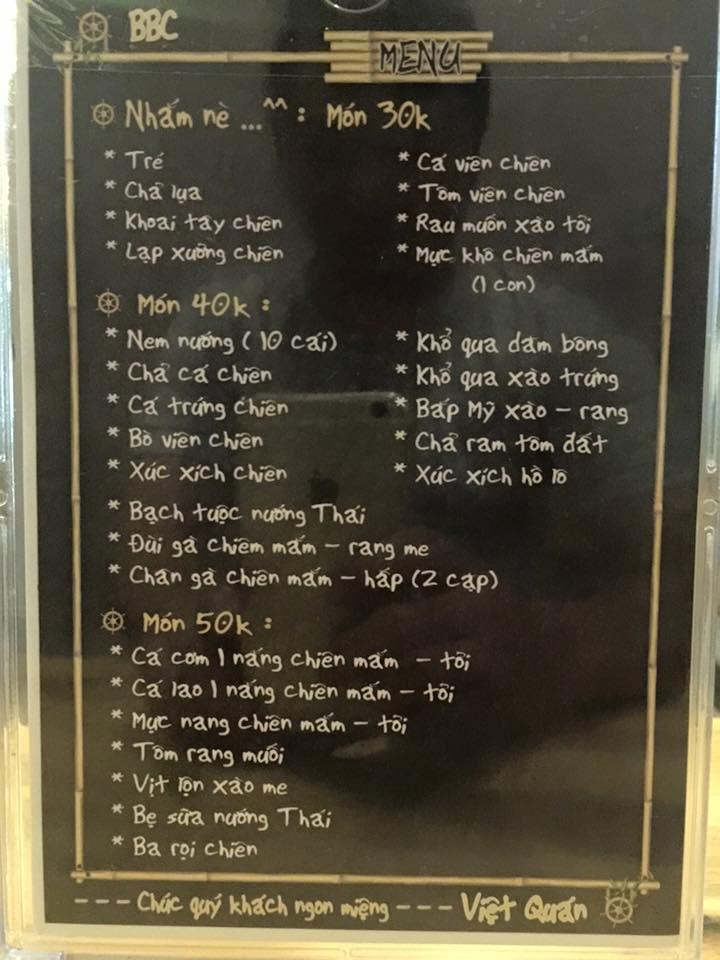 BBC
MENU
Nhấm nè ...^^ : Món 30k
* Tré
* Chả lụa
* Khoai tây chiên
* Lạp xưởng chiên
* Cá viên chiên
* Tôm viên chiên
* Rau muốn xào tỏi
* Mực khô chiên mấm
(1 con)
Món 40k :
* Nem nướng ( 10 cái)
* Chả cá chiên
* Cá trứng chiên
* Bò viên chiên
* Xúc xích chiên
* Khổ qua dăm bông
* Khổ qua xào trứng
* Bắp Mỹ xào - rang
* Chả ram tôm đất
* Xúc xích hồ lô
* Bạch tuộc nướng Thái
* Đùi gà chiêm mấm - rang me
* Chân gà chiên mấm - hấp (2 cặp)
Món 50k :
* Cá cơm 1 nắng chiên mấm - tỏi
* Cá lao 1 nắng chiên mấm - tỏi
* Mực nang chiên mấm - tỏi
* Tôm rang muối
* Vịt lộn xào me
* Bẹ sữa nướng Thái
* Ba rọi chiên
--- Chúc quý khách ngon miệng --- Việt Quán